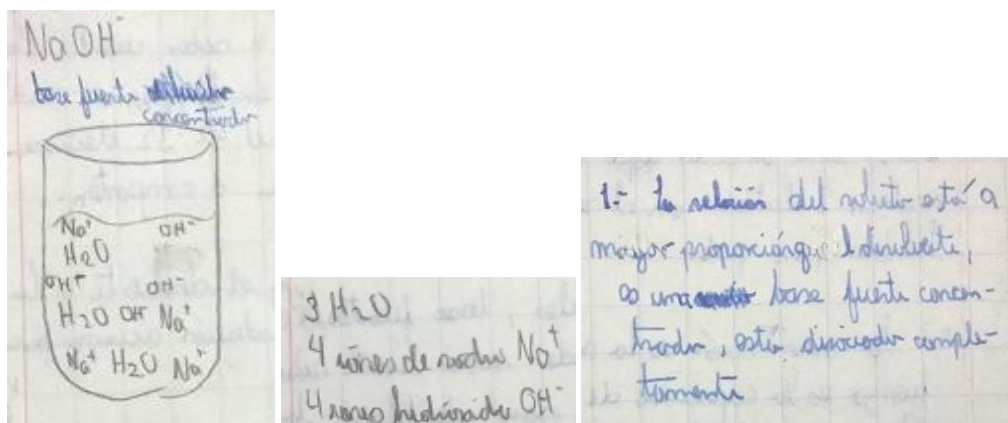 NaOH⁻
base fuerte
concentrada
Na⁺ OH⁻
H₂O
OH⁺ OH⁻
H₂O OH⁻ Na⁺
Na⁺ H₂O Na⁺
3 H₂O
4 iónes de sodio Na⁺
4 iones hidróxido OH⁻
1.- La relación del soluto está a
mayor proporción que l disolvente,
es una base fuerte concen-
trada, está disociada comple-
tamente